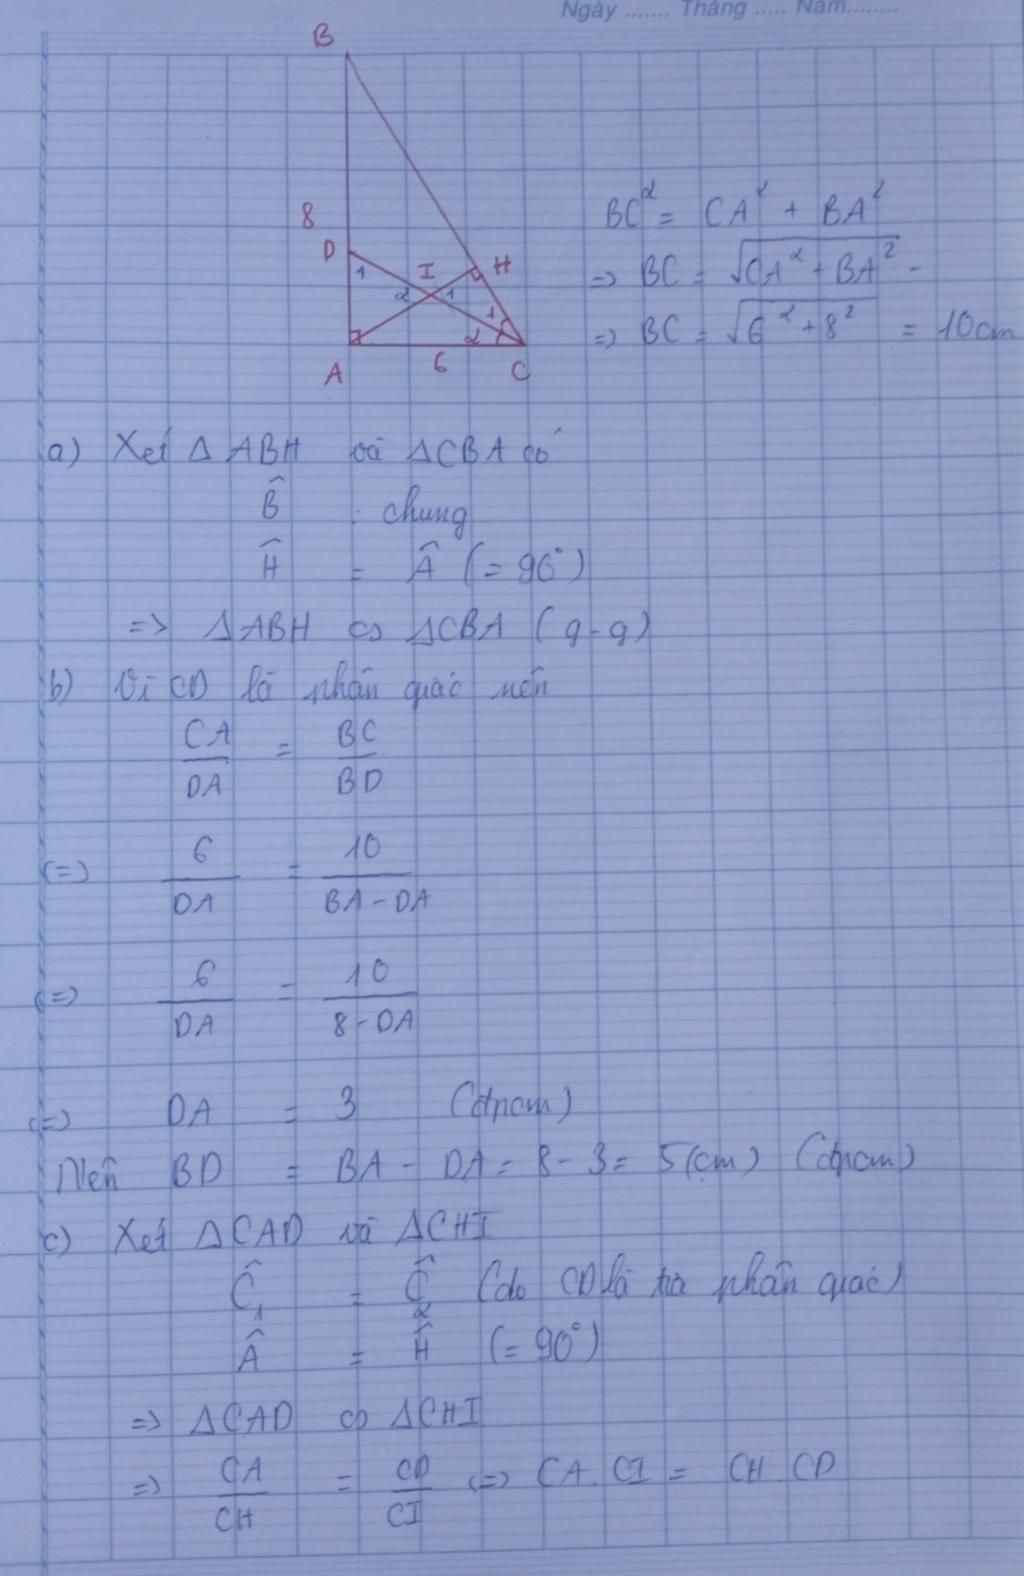 Ngày ....... Tháng ..... Năm........
B
8
D
1
I
H
2
1
1
2
A
6
C
BC² = CA² + BA²
=> BC = √CA² + BA²
=> BC = √6² + 8² = 10cm
a) Xét Δ ABH và ΔCBA có
B̂ : chung
Ĥ = Â (= 90°)
=> ΔABH ∽ ΔCBA (g-g)
b) Vì CD là phân giác nên
CA/DA = BC/BD
(=) 6/DA = 10/BA-DA
(=) 6/DA = 10/8-DA
(=) DA = 3 (đpcm)
Nên BD = BA - DA = 8 - 3 = 5(cm) (đpcm)
c) Xét ΔCAD và ΔCHI
Ĉ₁ = Ĉ₂ (do CD là tia phân giác)
Â = Ĥ (= 90°)
=> ΔCAD ∽ ΔCHI
=> CA/CH = CD/CI (=) CA . CI = CH . CD